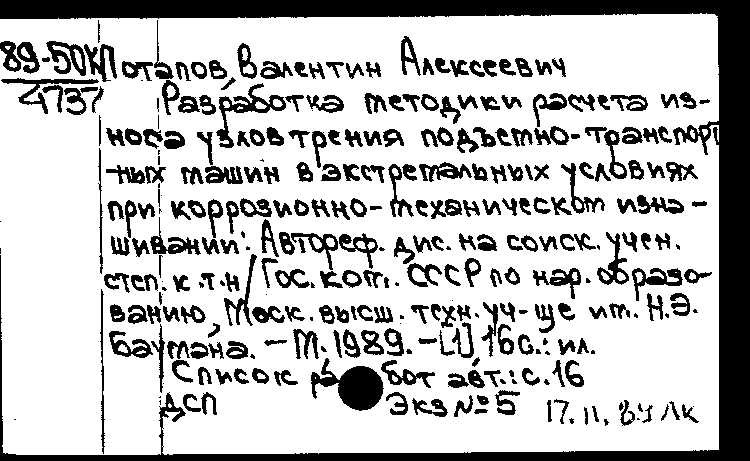 89-50к Потапов, Валентин Алексеевич
4737 Разработка методики расчета из-
носа узлов трения подъемно-транспорт
-ных машин в экстремальных условиях
при коррозионно-механическом изна-
шивании: Автореф. дис. на соиск. учен.
степ. к.т.н/ Гос. ком. СССР по нар. образо-
ванию, Моск. высш. техн. уч-ще им. Н.Э.
Баумана. - М. 1989. - [1] 16 с.: ил.
Список работ авт.: с. 16
ДСП Экз № 5 17.11.89 Лк